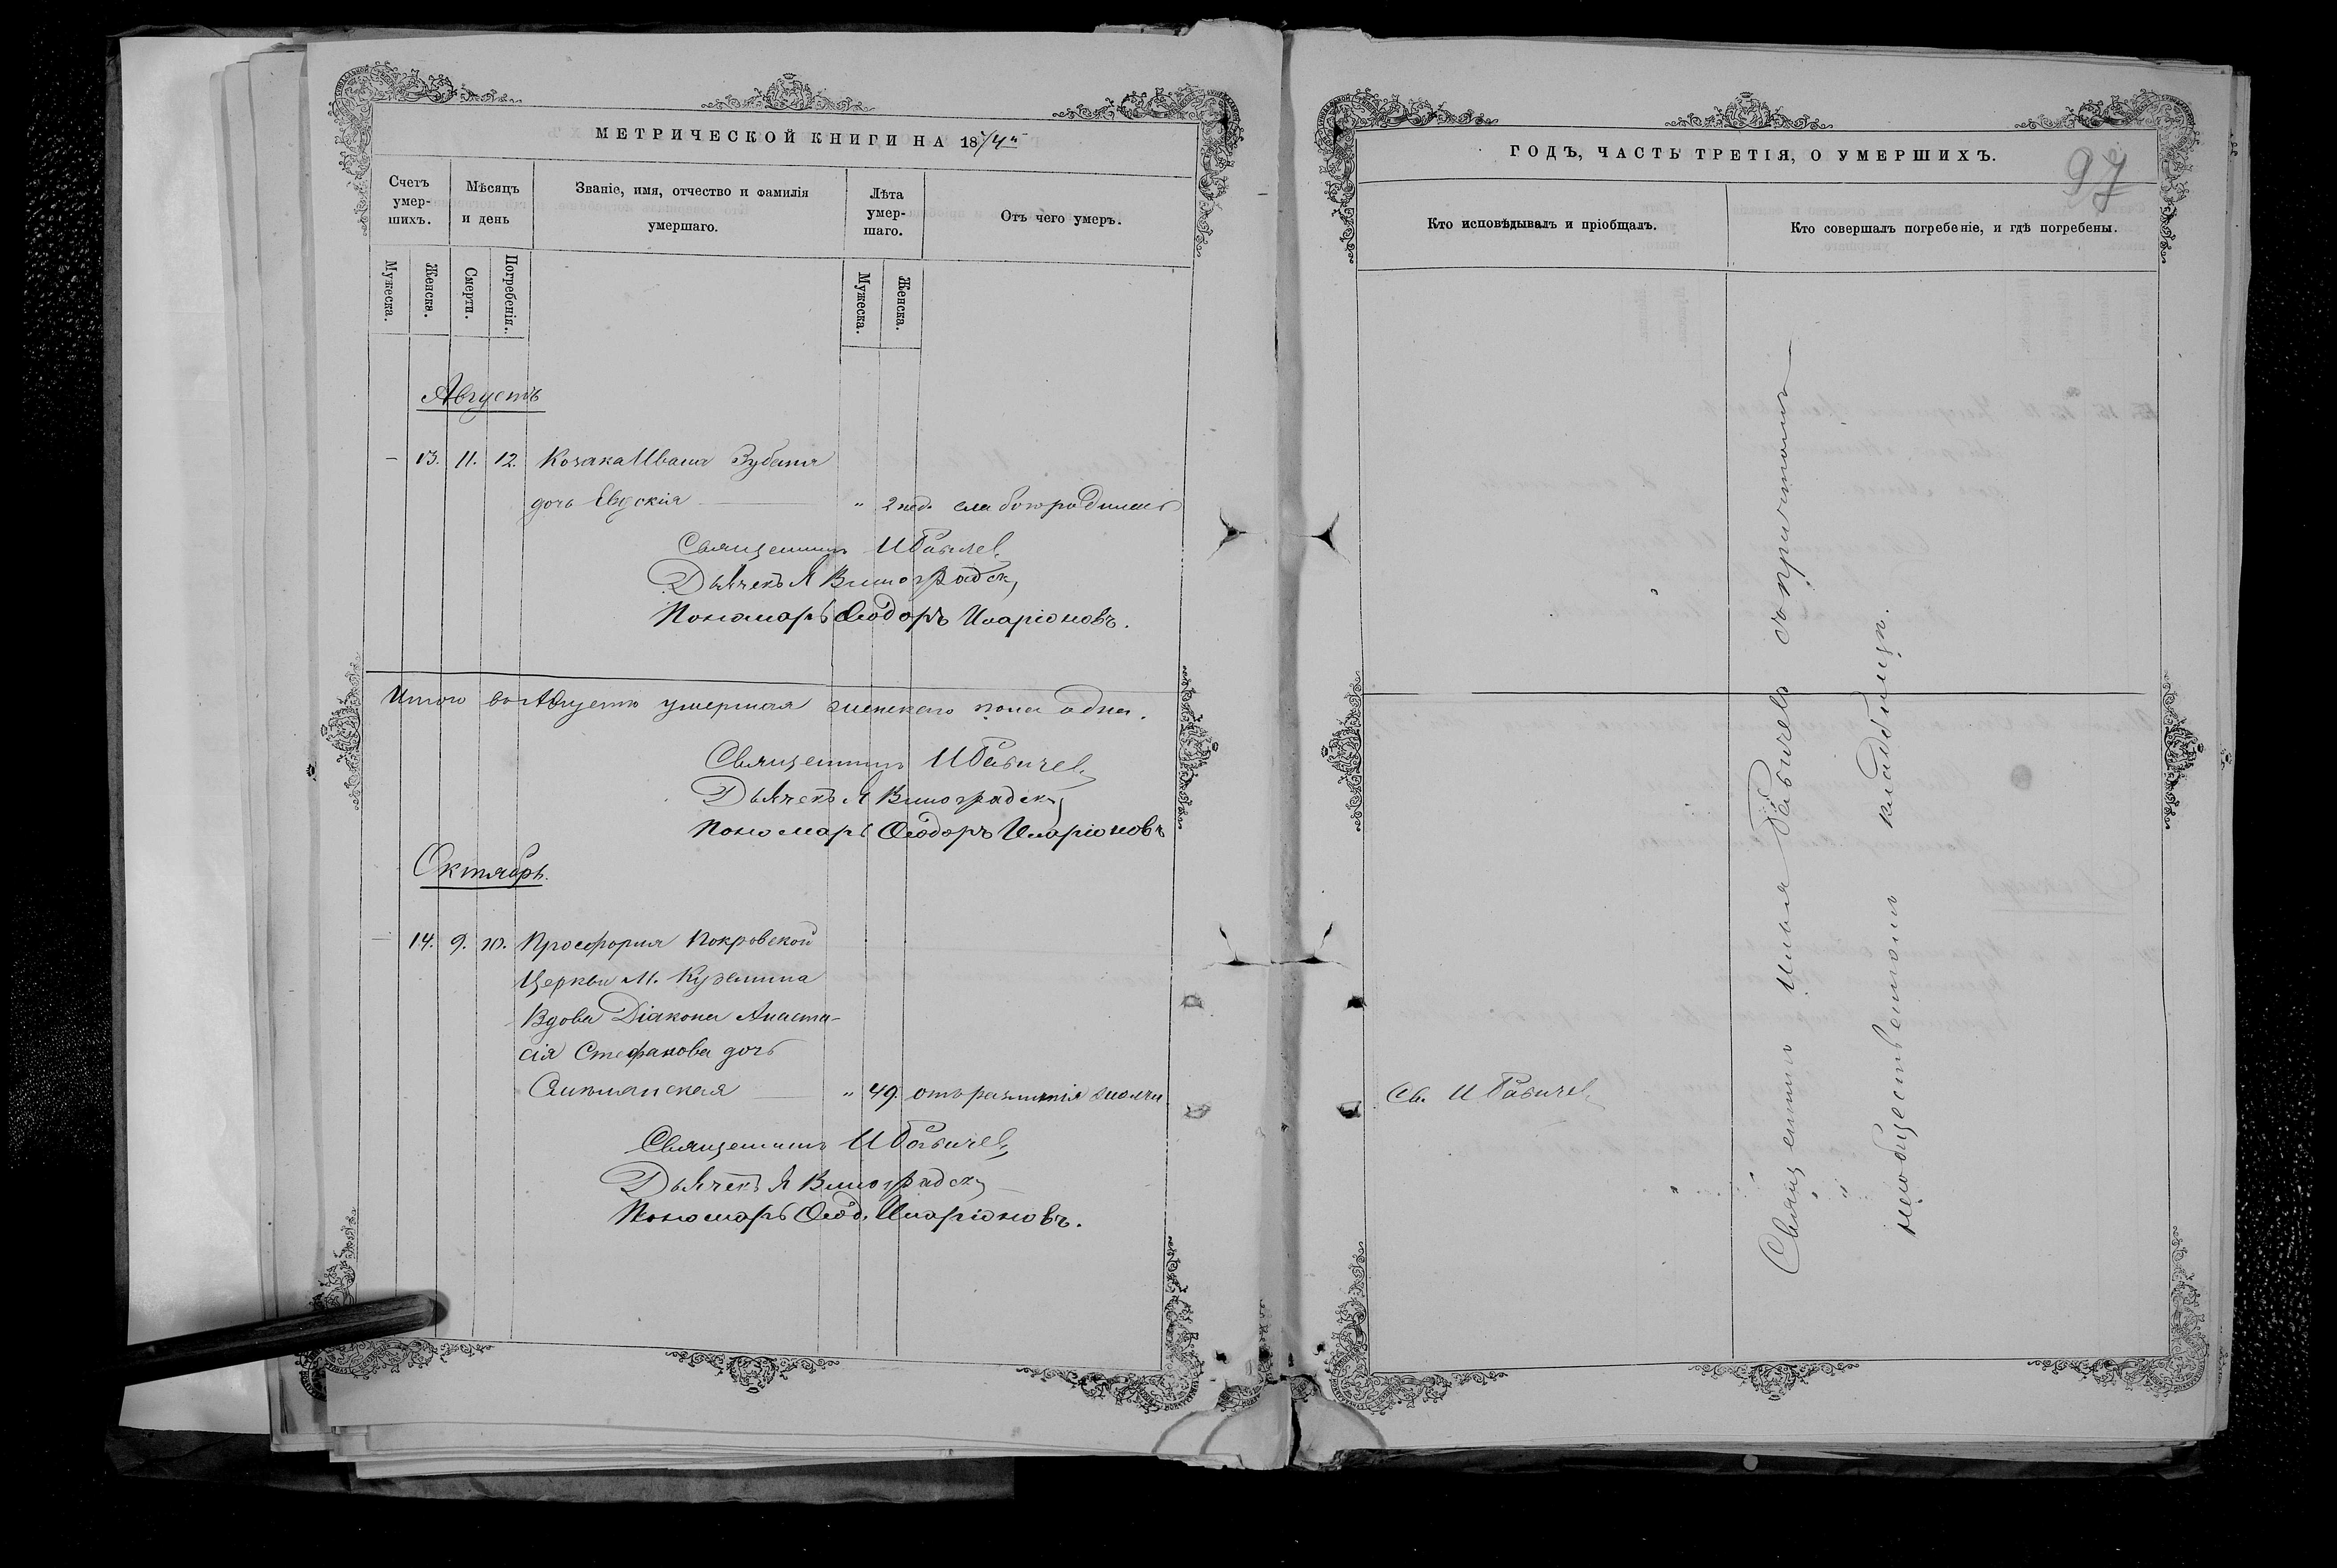 МЕТРИЧЕСКОЙ КНИГИ НА 1874й
Счетъ умер-шихъ.
Мѣсяцъ и день
Званіе, имя, отчество и фамилія умершаго.
Лѣта умер-шаго.
Отъ чего умеръ.
Мужеска.
Женска.
Смерти.
Погребенія.
Мужеска.
Женска.
Августъ
– 13. 11. 12. Козака Ивана Зубаня
дочь Евдокія " 2 нед.
Священникъ И Бабичев
Дьячекъ Я Виноградск
Пономарь Ѳеодоръ Иларіоновъ.
Итого въ Августѣ умершая женскаго пола одна.
Священникъ И Бабичев
Дьячекъ Я Виноградск
Пономарь Ѳеодоръ Иларіоновъ
Октябрь.
– 14. 9. 10. Просфорня Покровской
Церкви М.
Вдова Діакона Анаста-
сія Стефанова дочь
" 49. отъ разлитія жолчи
Священникъ И Бабичев
Дьячекъ Я Виноградск
Пономарь Ѳеод. Иларіоновъ.
ГОДЪ, ЧАСТЬ ТРЕТІЯ, О УМЕРШИХЪ.
97
Кто исповѣдывалъ и пріобщалъ.
Кто совершалъ погребеніе, и гдѣ погребены.
Св. И Бабичев
Священникъ Илья Бабичевъ съ причтомъ
на общественномъ кладбищѣ.